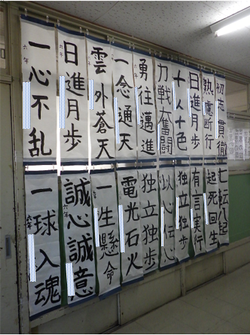 初志貫徹
熟慮断行
日進月歩
十人十色
力戦奮闘
勇往邁進
一念通天
雲外蒼天
日進月歩
一心不乱
七転八起
起死回生
有言実行
独立独歩
以心伝心
独立独歩
電光石火
一生懸命
誠心誠意
一球入魂